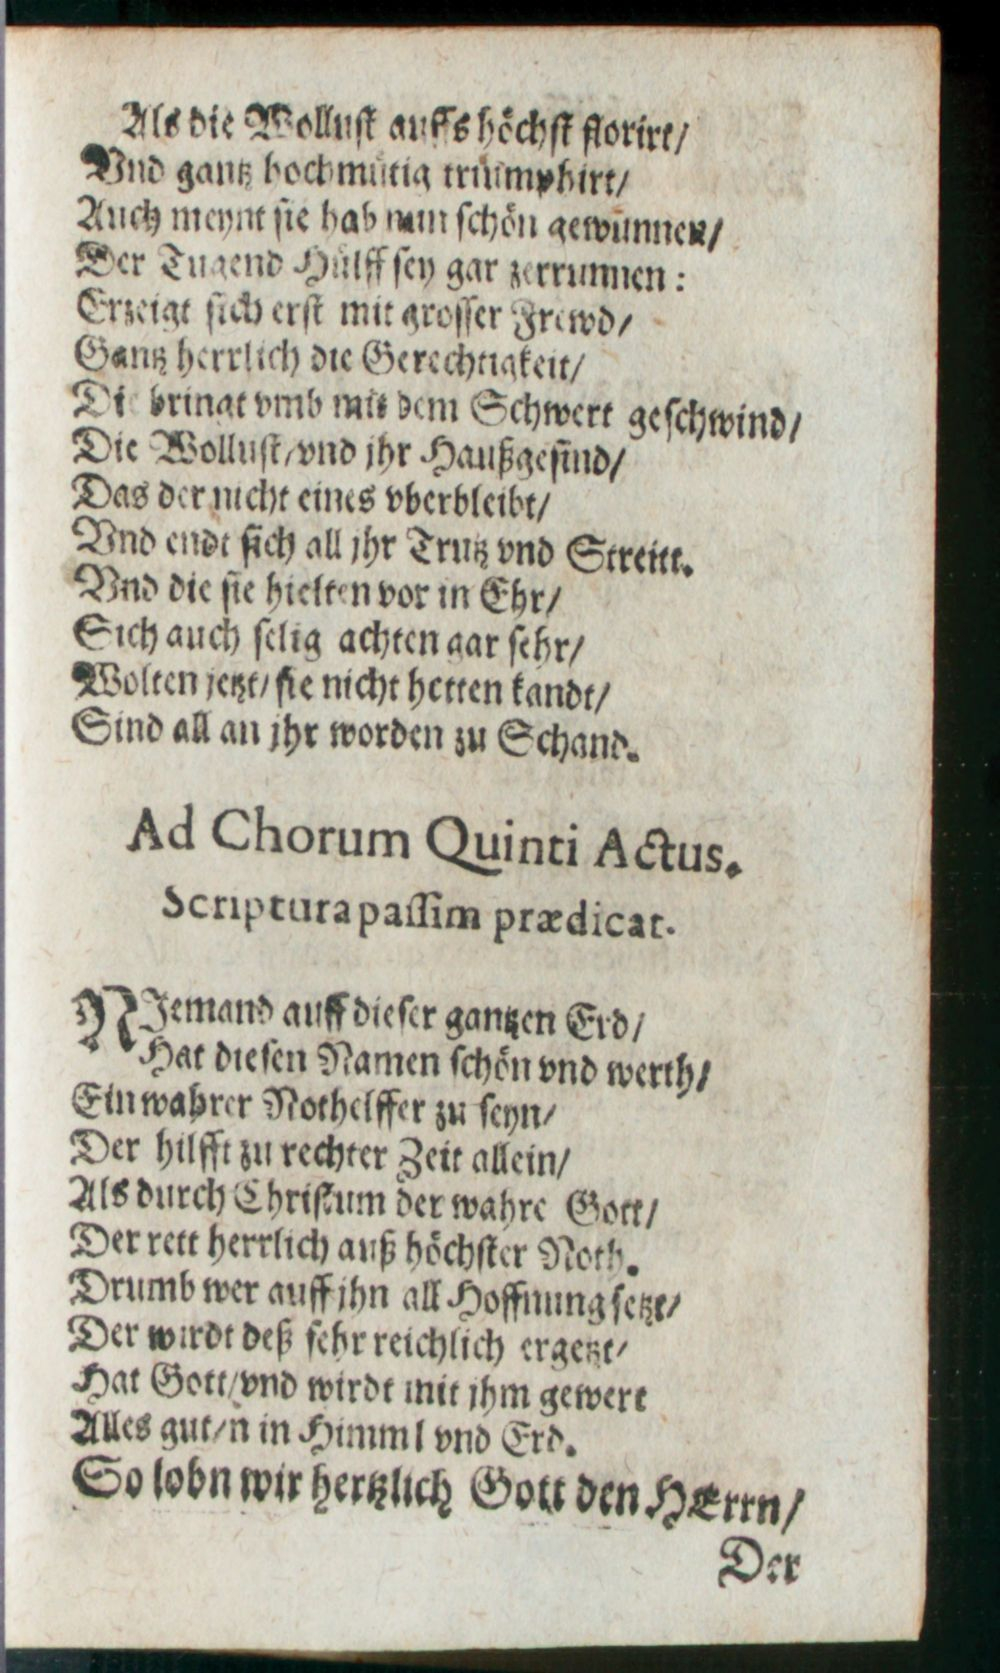 Als die Wollust auffs höchst florirt/
Vnd gantz hochmütig triumphirt/
Auch meynt sie hab nun schön gewunnen/
Der Tugend Hülff sey gar zerrunnen:
Erzeigt sich erst mit grosser Frewd/
Gantz herrlich die Gerechtigkeit/
Die bringt vmb mit dem Schwert geschwind/
Die Wollust/vnd jhr Haußgesind/
Das der nicht eines vberbleibt/
Vnd endt sich all jhr Trutz vnd Streitt.
Vnd die sie hielten vor in Ehr/
Sich auch selig achten gar sehr/
Wolten jetzt/sie nicht hetten kandt/
Sind all an jhr worden zu Schand.
Ad Chorum Quinti Actus.
Scriptura passim prædicat.
NIemand auff dieser gantzen Erd/
Hat diesen Namen schön vnd werth/
Ein wahrer Nothelffer zu seyn/
Der hilfft zu rechter Zeit allein/
Als durch Christum der wahre Gott/
Der rett herrlich auß höchster Noth.
Drumb wer auff jhn all Hoffnung setzt/
Der wirdt deß sehr reichlich ergetzt/
Hat Gott/vnd wirdt mit jhm gewert
Alles gut/n in Himml vnd Erd.
So lobn wir hertzlich Gott den HErrn/
Der